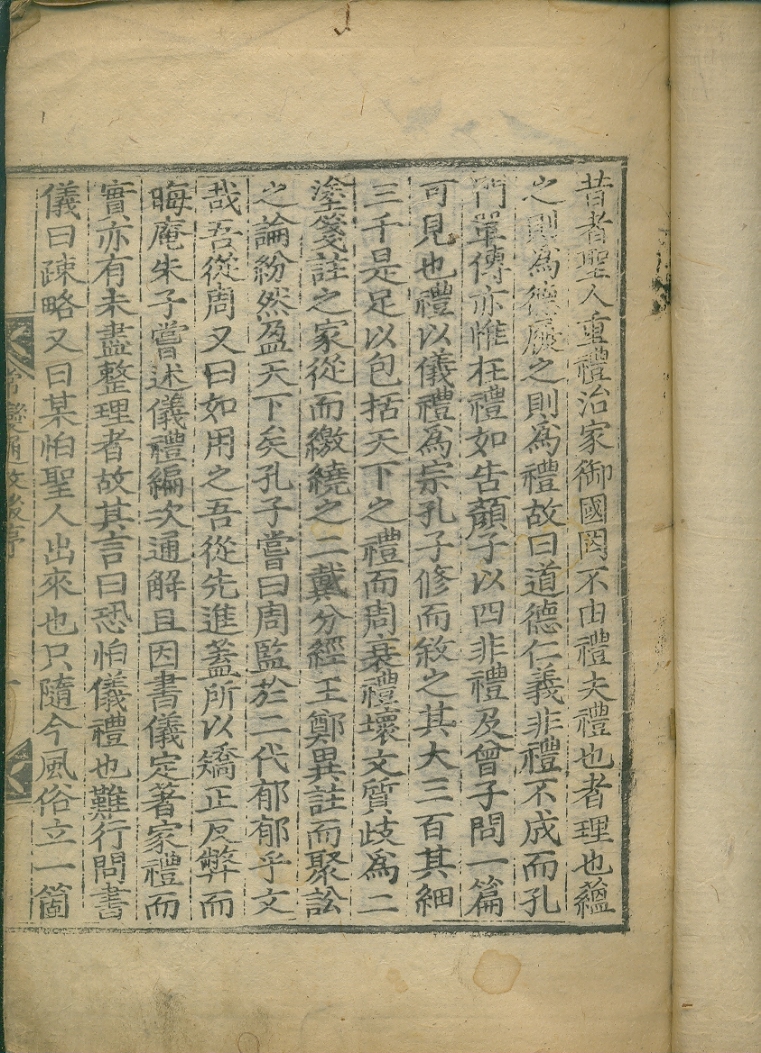 昔者聖人重禮治家御國罔不由禮夫禮也者理也蘊
之則爲德履之則爲禮故曰道德仁義非禮不成而孔
門單傳亦惟在禮如告顔子以四非禮及曾子問一篇
可見也禮以儀禮爲宗孔子修而敘之其大三百其細
三千是足以包括天下之禮而周衰禮壞文質歧爲二
塗箋註之家從而繳繞之二戴分經王鄭異註而聚訟
之論紛然盈天下矣孔子嘗曰周監於二代郁郁乎文
哉吾從周又曰如用之吾從先進蓋所以矯正反弊而
晦庵朱子嘗述儀禮編次通解且因書儀定著家禮而
實亦有未盡整理者故其言曰恐怕儀禮也難行問書
儀曰疎略又曰某怕聖人出來也只隨今風俗立一箇
常變通攷後序